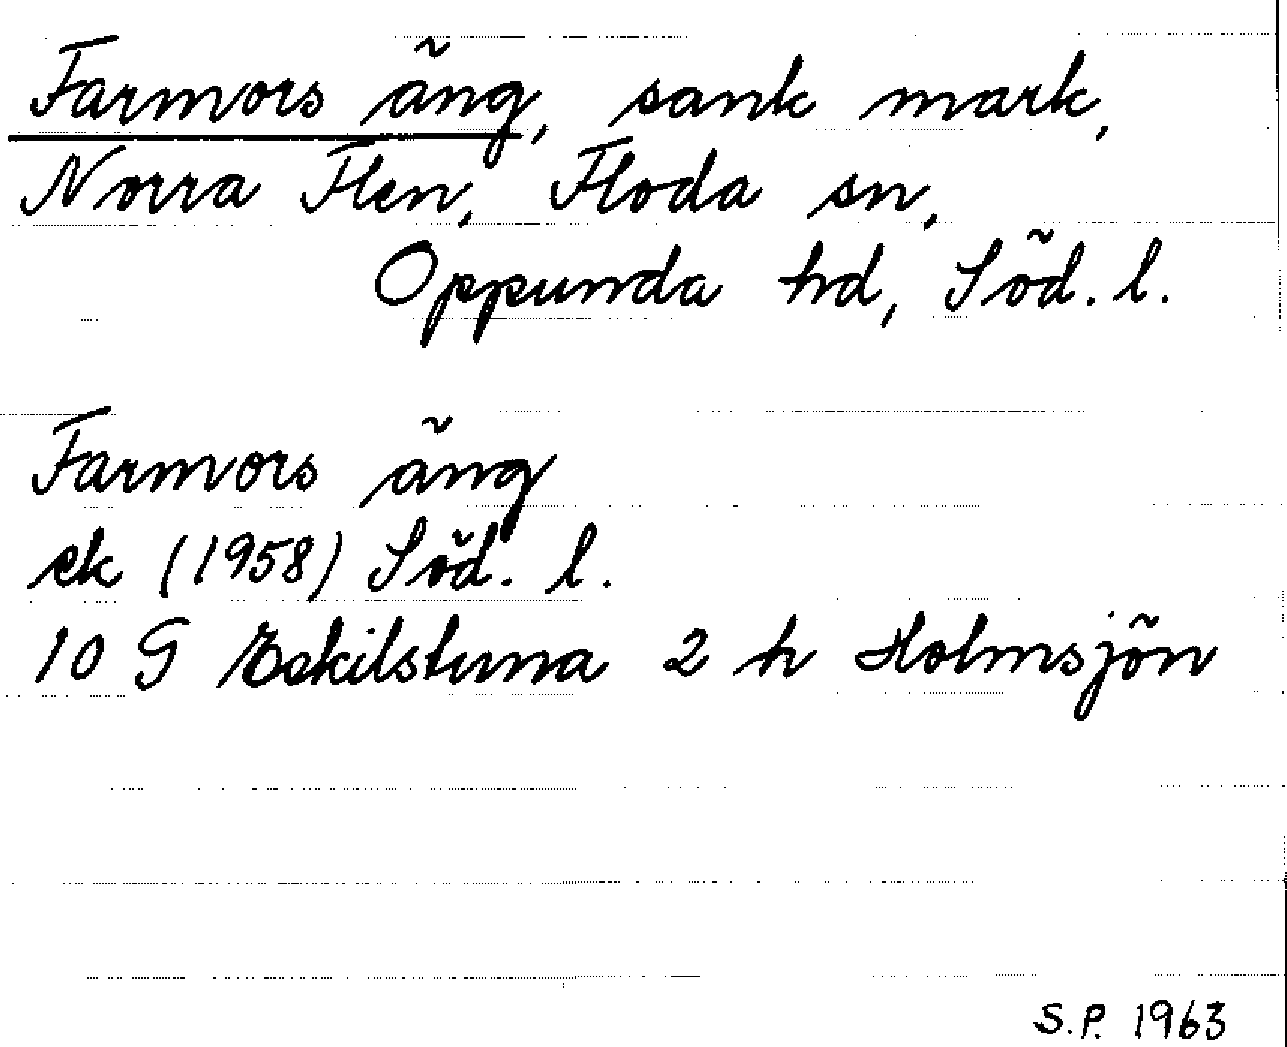 Farmors äng, sank mark,
Norra Flen, Floda sn,
Oppunda hd, Söd. l.
Farmors äng
ek (1958) Söd. l.
10 G Eskilstuna 2 h Holmsjön
S.P. 1963